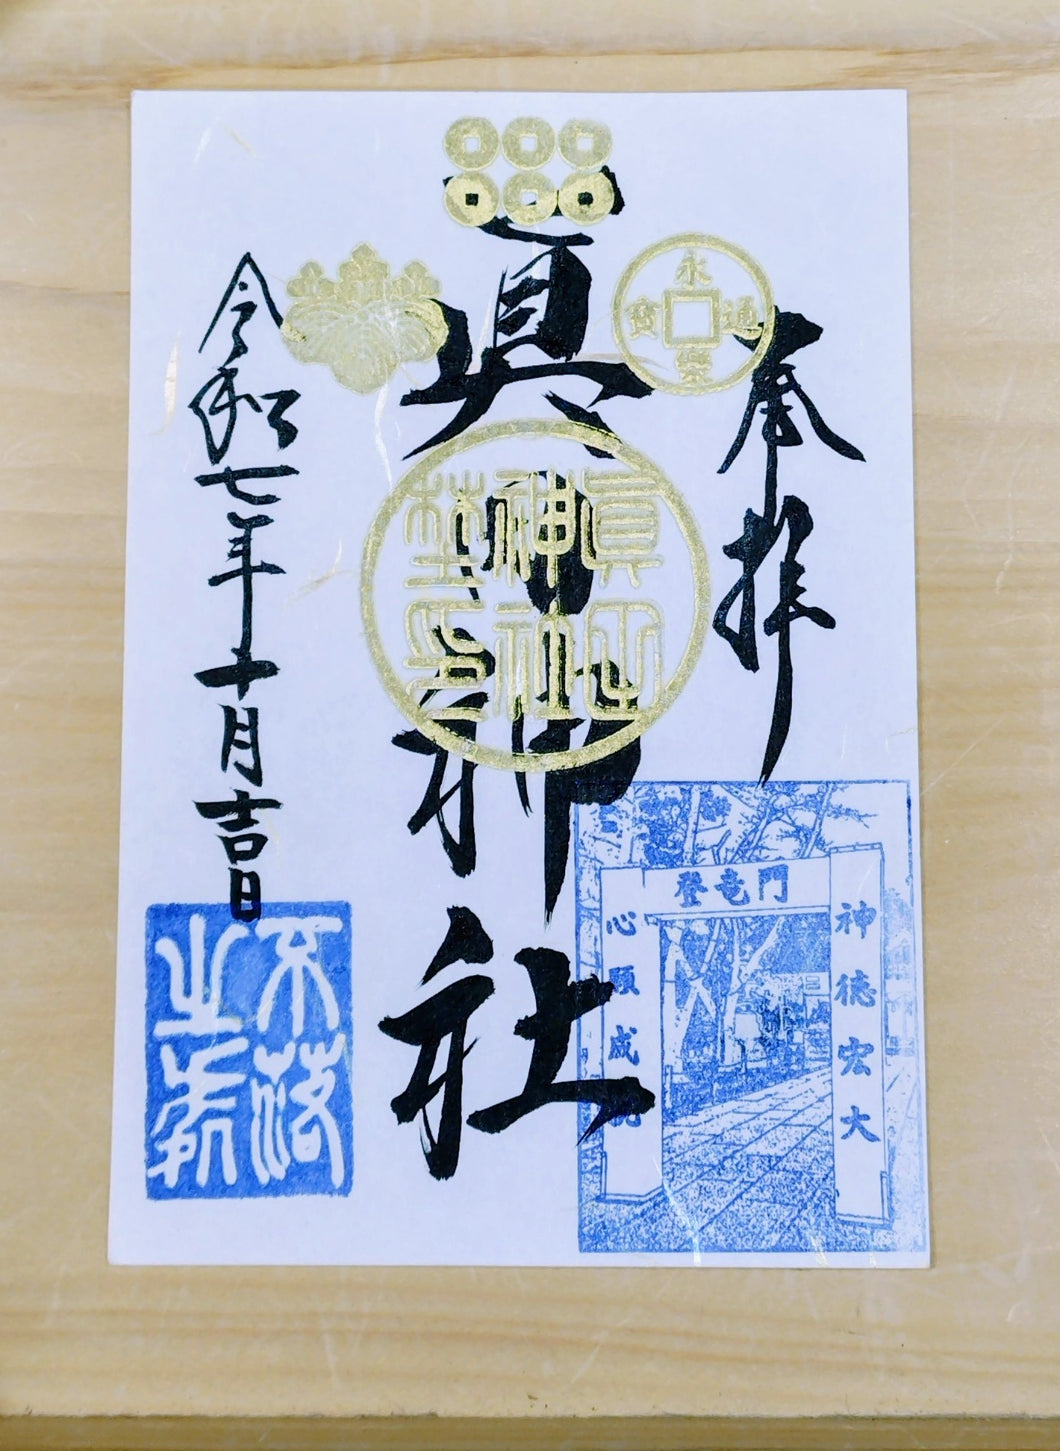 奉拝
永樂通寳
眞田神社
眞田
神社
印
令和七年十月吉日
不落
之
登竜門
神徳宏大
心願成就